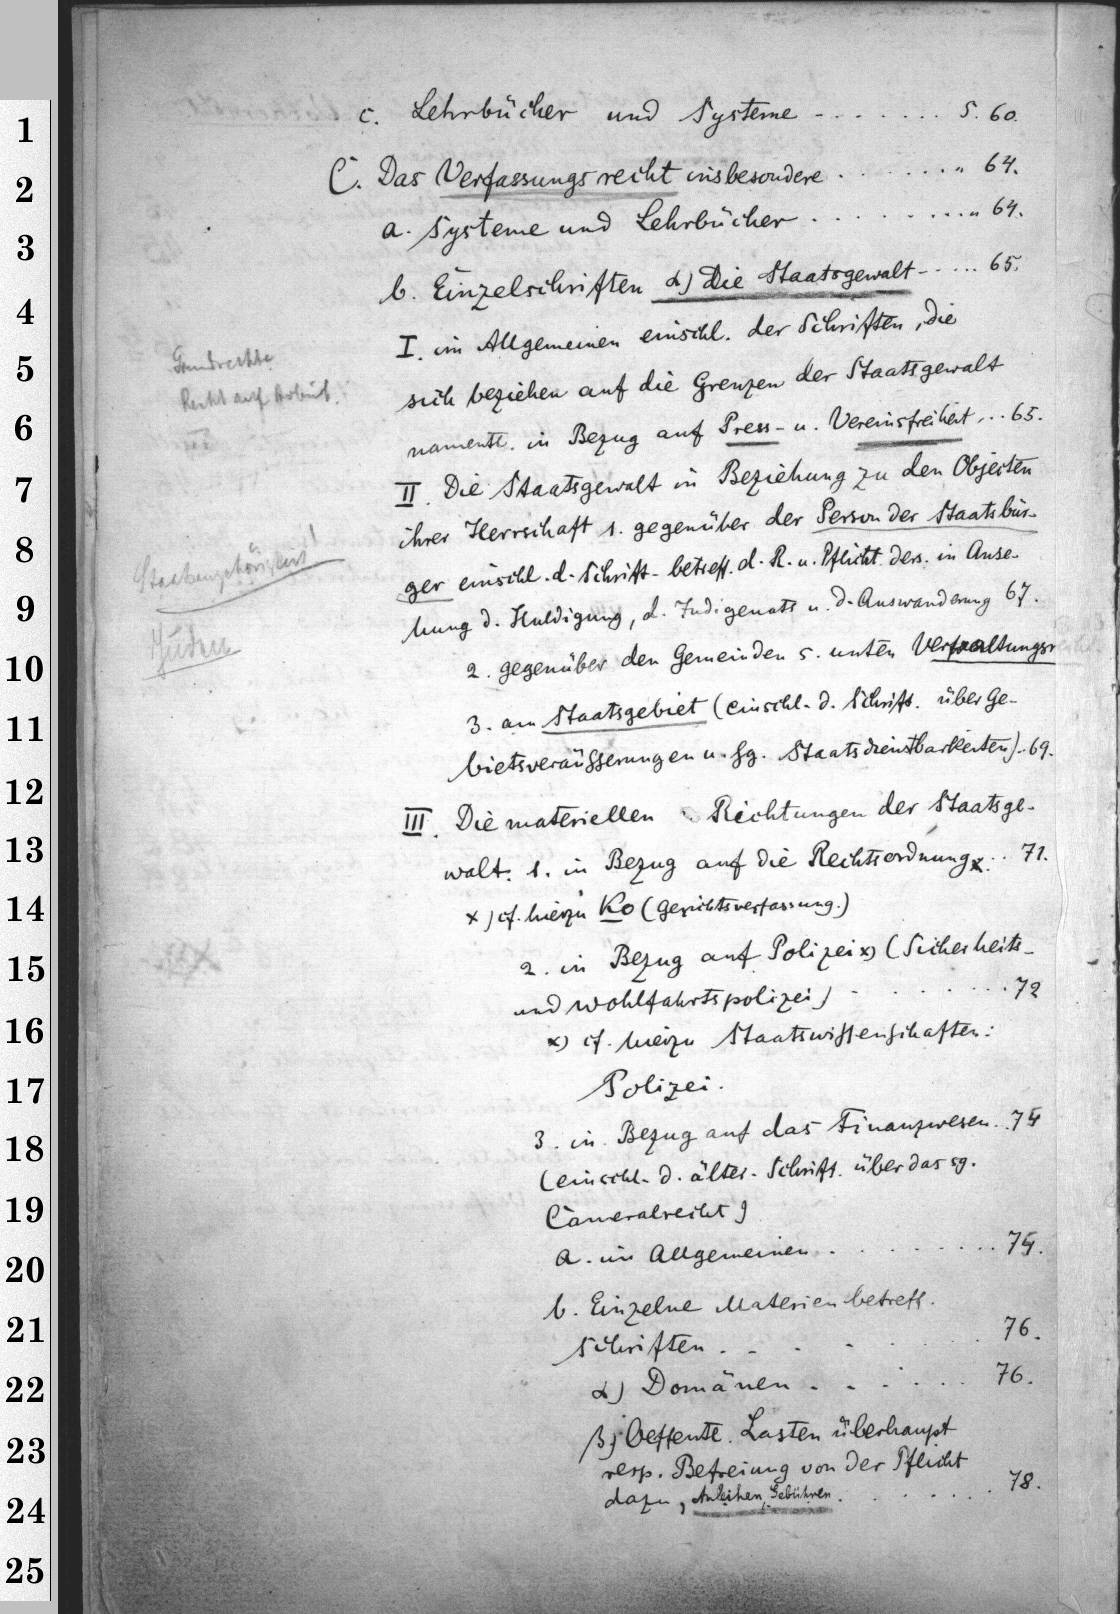 c. Lehrbücher und Systeme - . . . . . . S. 60.
C. Das Verfassungsrecht insbesondere . . . . . . „ 64.
a. Systeme und Lehrbücher . . . . . . . . . „ 64.
b. Einzelschriften α) Die Staatsgewalt - . . . . 65.
I. im Allgemeinen einschl. der Schriften, die
sich beziehen auf die Grenzen der Staatsgewalt
Grundrechte
Recht auf Arbeit.
namentl. in Bezug auf Press- u. Vereinsfreiheit . . . 65.
II. Die Staatsgewalt in Beziehung zu den Objecten
ihrer Herrschaft 1. gegenüber der Person der Staatsbür-
ger einschl. d. Schrift. betreff. d. R. u. Pflicht. ders. in Anse-
Staatsangehörigkeit
hung d. Huldigung, d. Indigenats u. d. Auswanderung 67.
Juden
2. gegenüber den Gemeinden s. unten Verwaltungsr
3. am Staatsgebiet (einschl. d. Schrift. über Ge-
bietsveräußerungen u. sg. Staatsdienstbarkeiten) . . 69.
III. Die materiellen Richtungen der Staatsge-
walt. 1. in Bezug auf die Rechtsordnung x . . 71.
x) cf. hierzu Ko (Gerichtsverfassung.)
2. in Bezug auf Polizei x) (Sicherheits-
und Wohlfahrtspolizei) - . . . . . . . 72
x) cf. hierzu Staatswissenschaften:
Polizei.
3. in Bezug auf das Finanzwesen . . 75
(einschl. d. älter. Schrift. über das sg.
Cameralrecht)
a. im Allgemeinen . . . . . . . . . 75.
b. Einzelne Materien betreff.
Schriften . . . . . . . 76.
α) Domänen . . . . . . . 76.
β) Oeffentl. Lasten überhaupt
resp. Befreiung von der Pflicht
dazu, Anleihen, Gebühren . . . . . . . 78.
1
2
3
4
5
6
7
8
9
10
11
12
13
14
15
16
17
18
19
20
21
22
23
24
25